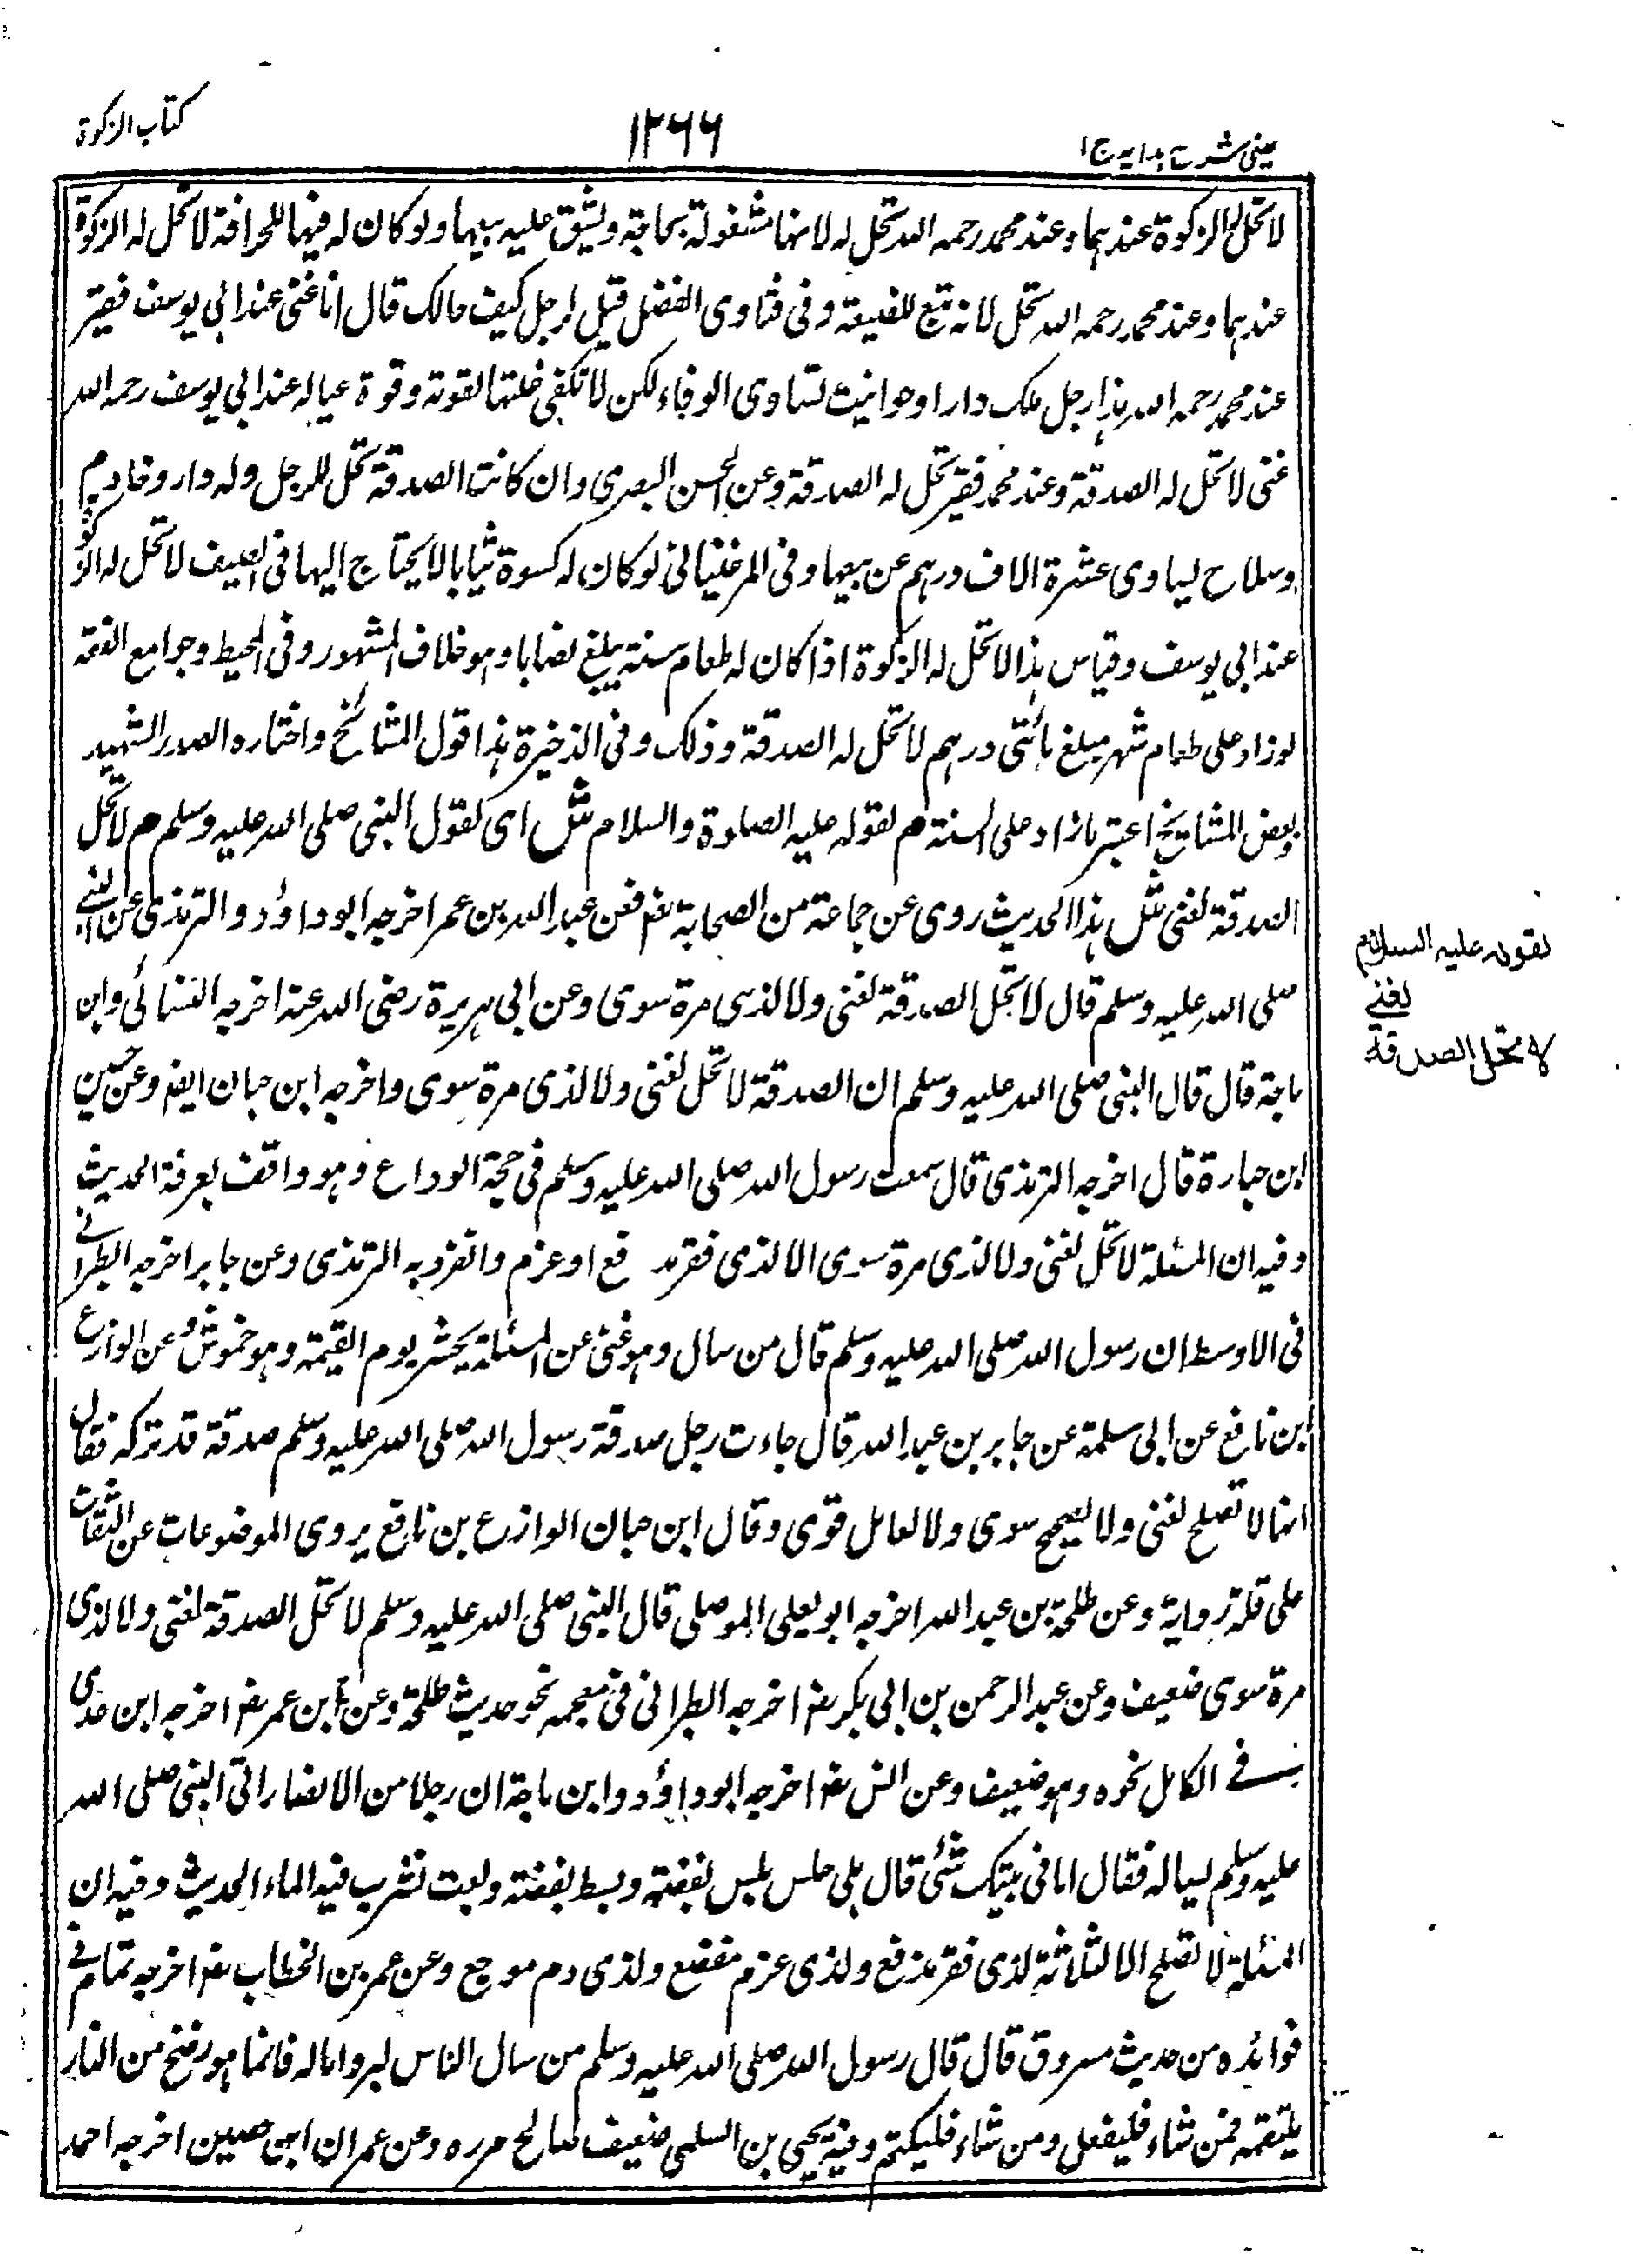 عینی شرح ہدایہ ج ا
۱۲۶۶
کتاب الزکوة
لا تحل له الزکوة عندہما وعند محمد رحمه الله تحل له لانہا مشغولة بحاجة ویشق علیہ بیعہا ولو کان له فیہا للحرافة لا تحل له الزکوة
عندہما وعند محمد رحمه الله تحل لانه تبع للضیعة وفی فتاوی الفضل قیل لرجل کیف مالک قال انا غنی عند ابی یوسف فقیر
عند محمد رحمه الله ہذا رجل ملک دارا وحوانیت تساوی الوفاء لکن لا تکفی غلتہا لقوته وقوة عیاله عند ابی یوسف رحمه الله
غنی لا تحل له الصدقة وعند محمد فقیر تحل له الصدقة وعن الحسن البصری وان کانت الصدقة تحل للرجل وله دار وخادم
وسلاح یساوی عشرة الاف درہم عن بیعہا وفی المرغینانی لو کان له کسوة ثیابا لا یحتاج الیہا فی الصیف لا تحل له الزکوة
عند ابی یوسف وقیاس ہذا لا تحل له الزکوة اذا کان له طعام سنة یبلغ نصابا وہو خلاف المشہور وفی المحیط وجوامع الفقه
لو زاد علی طعام شہر مبلغ مائتی درہم لا تحل له الصدقة وذلک وفی الذخیرة ہذا قول المشائخ واختاره الصدر الشہید
وبعض المشایخ اعتبر ما زاد علی السنة م لقوله علیه الصلوة والسلام ش ای لقول النبی صلی الله علیه وسلم م لا تحل
الصدقة لغنی ش ہذا الحدیث روی عن جماعة من الصحابة رضہ فعن عبد الله بن عمر اخرجه ابو داؤد والترمذی عن النبی
صلی الله علیه وسلم قال لا تحل الصدقة لغنی ولا لذی مرة سوی وعن ابی ہریرة رضی الله عنه اخرجه النسائی وابن
ماجة قال قال النبی صلی الله علیه وسلم ان الصدقة لا تحل لغنی ولا لذی مرة سوی واخرجه ابن حبان ایضہ وعن حسین
ابن حبارة قال اخرجه الترمذی قال سمعت رسول الله صلی الله علیه وسلم فی حجة الوداع وہو واقف بعرفة الحدیث
وفیه ان المسئلة لا تحل لغنی ولا لذی مرة سوی الا لذی فقر مد قع او عزم وانفرد به الترمذی وعن جابر اخرجه الطبرانی
فی الاوسط ان رسول الله صلی الله علیه وسلم قال من سال وہو غنی عن المسئلة یحشر یوم القیمة وہو خموش وعن الوازع
ابن نافع عن ابی سلمة عن جابر بن عبد الله قال جاءت رجل صدقة رسول الله صلی الله علیه وسلم صدقة قد ترکه فقال
انہا لا تصلح لغنی ولا لصحیح سوی ولا لعامل قوی وقال ابن حبان الوازع بن نافع یروی الموضوعات عن الثقات
علی قلة روایة وعن طلحة بن عبد الله اخرجه ابو یعلی الموصلی قال النبی صلی الله علیه وسلم لا تحل الصدقة لغنی ولا لذی
مرة سوی ضعیف وعن عبد الرحمن بن ابی بکر رضہ اخرجه الطبرانی فی معجمه نحو حدیث طلحة وعن ابن عمر رضہ اخرجه ابن عدی
فی الکامل نحوه وہو ضعیف وعن انس رضہ اخرجه ابو داؤد وابن ماجة ان رجلا من الانصار اتی النبی صلی الله
علیه وسلم یساله فقال اما فی بیتک شئ قال بلی حلس یلبس بعضه وبسط بعضه وبعت نشرب فیه الماء الحدیث وفیه ان
المسئلة لا تصلح الا لثلاثة لذی فقر مدقع ولذی عزم مفضع ولذی دم موجع وعن عمر بن الخطاب رضہ اخرجه تمام فی
فوائده من حدیث مسروق قال قال رسول الله صلی الله علیه وسلم من سال الناس لیروا ماله فانما ہو رضخ من النار
یلتقمه فمن شاء فلیفعل ومن شاء فلیکتم وفیه یحیی بن السلمی ضعیف صالح مرره وعن عمران ابن حصین اخرجه احمد
لقوله علیه السلام
لغنی
لا تحل الصدقة